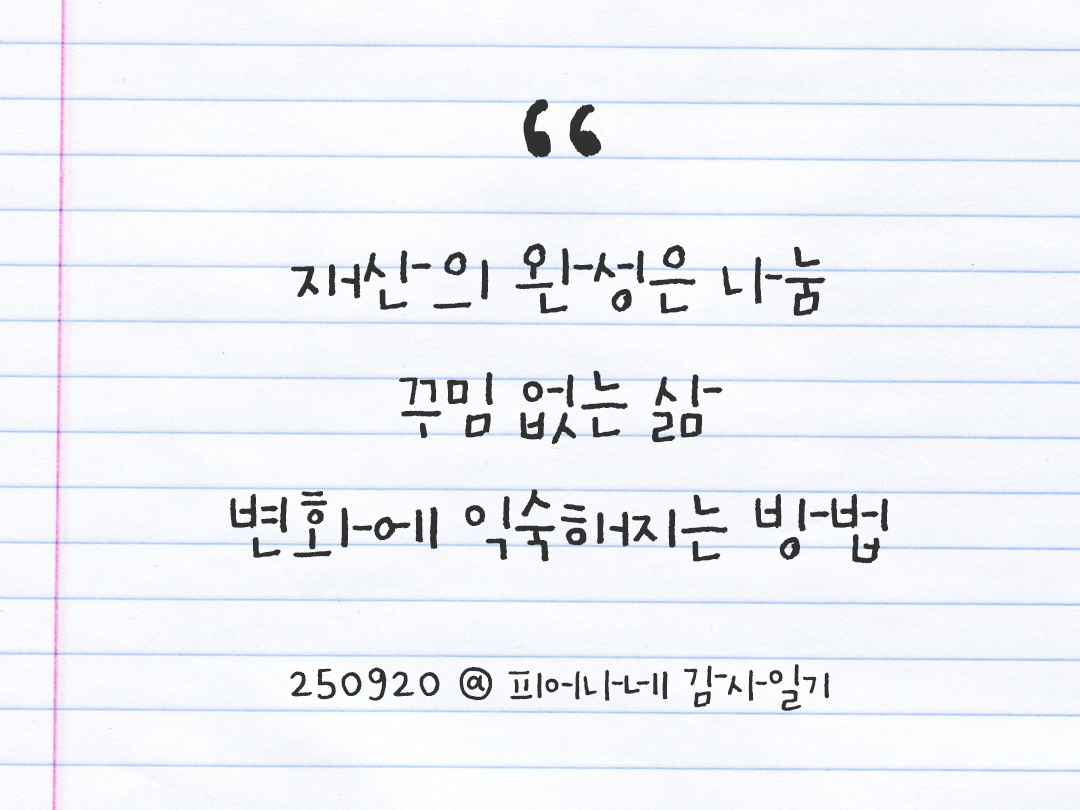 “
재산의 완성은 나눔
꾸밈 없는 삶
변화에 익숙해지는 방법
250920 @ 피어나네 감사일기